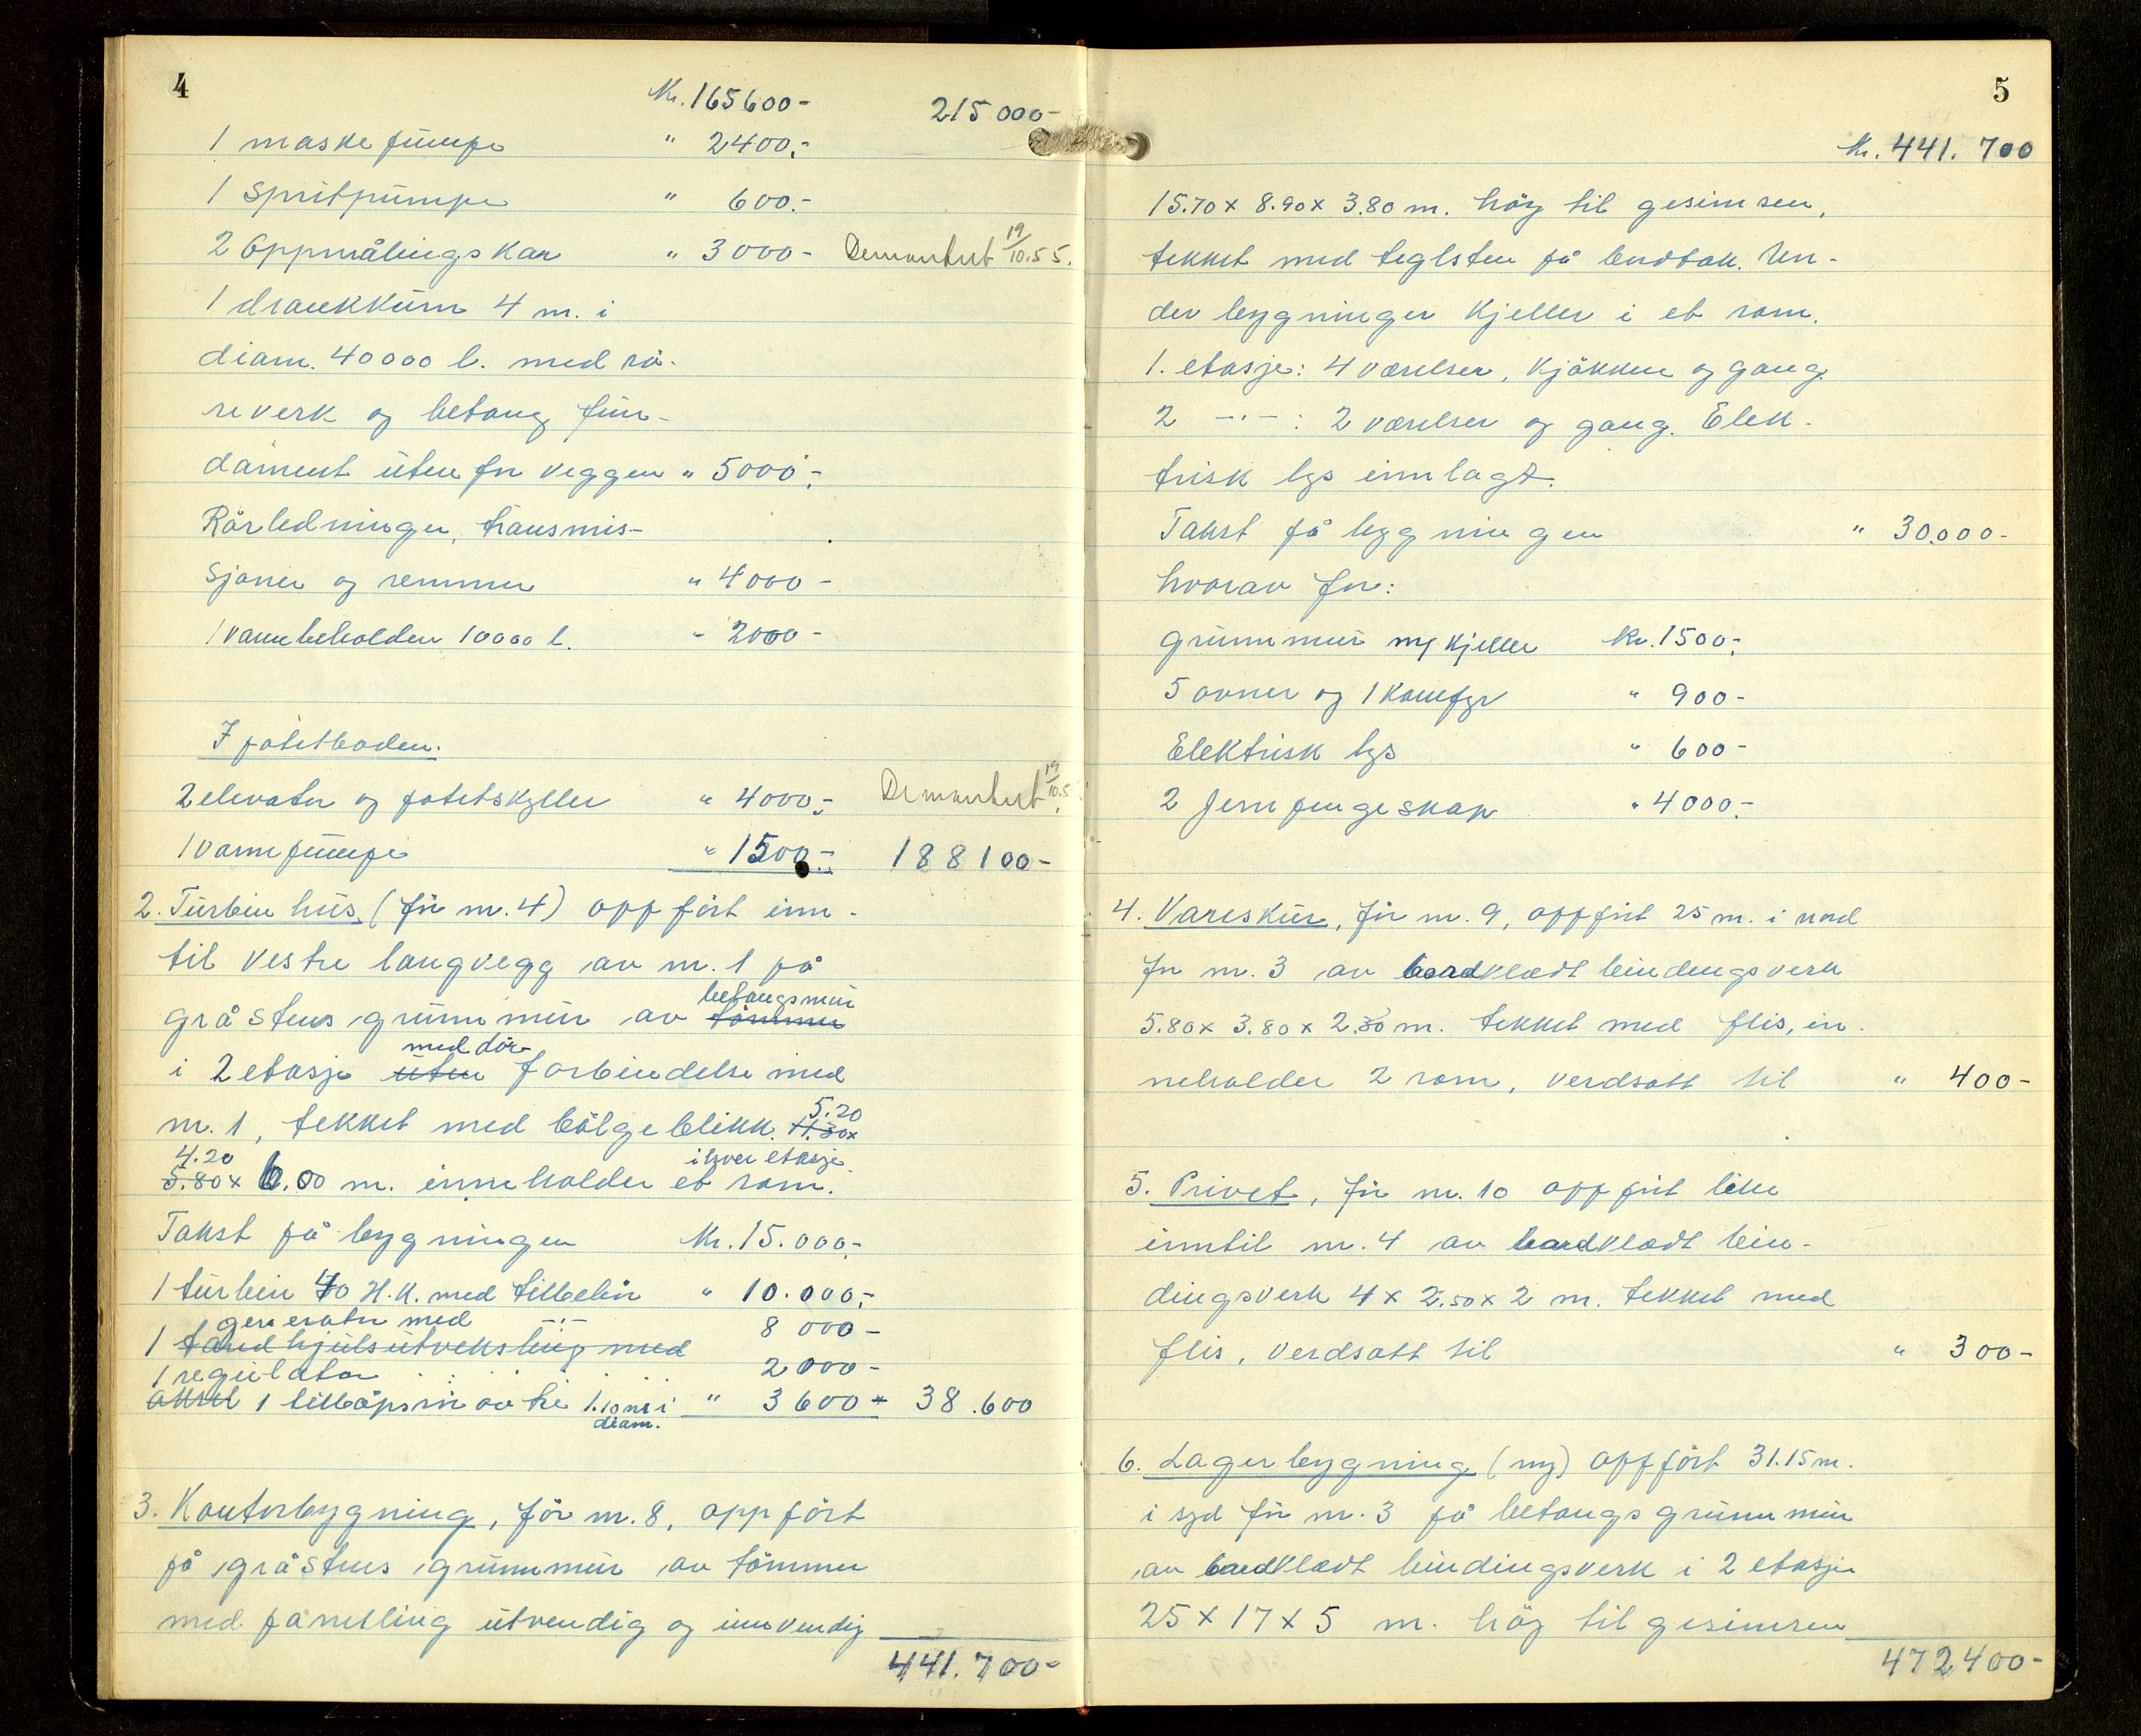 4
Kr. 165600- 215000-
1 maskepumpe " 2400.-
1 Spritpumpe " 600.-
2 Oppmålingskar " 3000- Demontert 19/10.55.
1 drankkum 4 m. i
diam. 40000 l. med rö-
reverk og betong fun-
dament uten for veggen " 5000.-
Rörledninger, transmis-
sjoner og remmer " 4000-
1 vannbeholder 10000 l. " 2000-
I potetboden.
2 elevator og potetskyller " 4000.- Demontert 19/10.5
1 vannpumpe " 1500.- 188100-
2. Turbinhus (för nr. 4) oppfört inn-
til vestre langvegg av nr. 1 på
betongsmur
gråstens grunnmur av tömmer
med dör-
i 2 etasje uten forbindelse med
5.20
nr. 1, tekket med bölgeblikk. 11.30x
4.20 i hver etasje
5.80 x 6.00 m. inneholder et rom.
Takst på bygningen Kr. 15.000.-
1 turbin 40 H.K. med tilbehör " 10.000.-
generator med —"— 8 000-
1 tandhjulsutveksling med
1 regulator 2 000-
aksel 1 tillöpsrör av tre 1.10 m i " 3 600- 38.600
diam.
3. Kontorbygning, för nr. 8, oppfört
på gråstens grunnmur av tömmer
med panelling utvendig og innvendig
441.700-
5
Kr. 441.700
15.70 x 8.90 x 3.80 m. höy til gesimsen,
tekket med teglsten på bordtak. Un-
der bygningen Kjeller i et rom.
1. etasje: 4 værelser, Kjökken og gang.
2 -"- : 2 værelser og gang. Elek-
trisk lys innlagt.
Takst på bygningen " 30.000-
hvorav for:
grunnmur m/ Kjeller Kr. 1500.-
5 ovner og 1 Komfyr " 900-
Elektrisk lys " 600-
2 Jernpengeskap " 4000.-
4. Vareskur, för nr. 9, oppfört 25 m. i nord
for nr. 3 av bordklædt bindingsverk
5.80 x 3.80 x 2.30 m. tekket med flis, in-
neholder 2 rom, verdsatt til " 400-
5. Privet, för nr. 10 oppfört like
inntil nr. 4 av bordklædt bin-
dingsverk 4 x 2.50 x 2 m. tekket med
flis, verdsatt til " 300-
6. Lagerbygning (ny) oppfört 31.15 m.
i syd för nr. 3 på betongs grunnmur
av bordklædt bindingsverk i 2 etasjer
25 x 17 x 5 m. höy til gesimsen
472400-